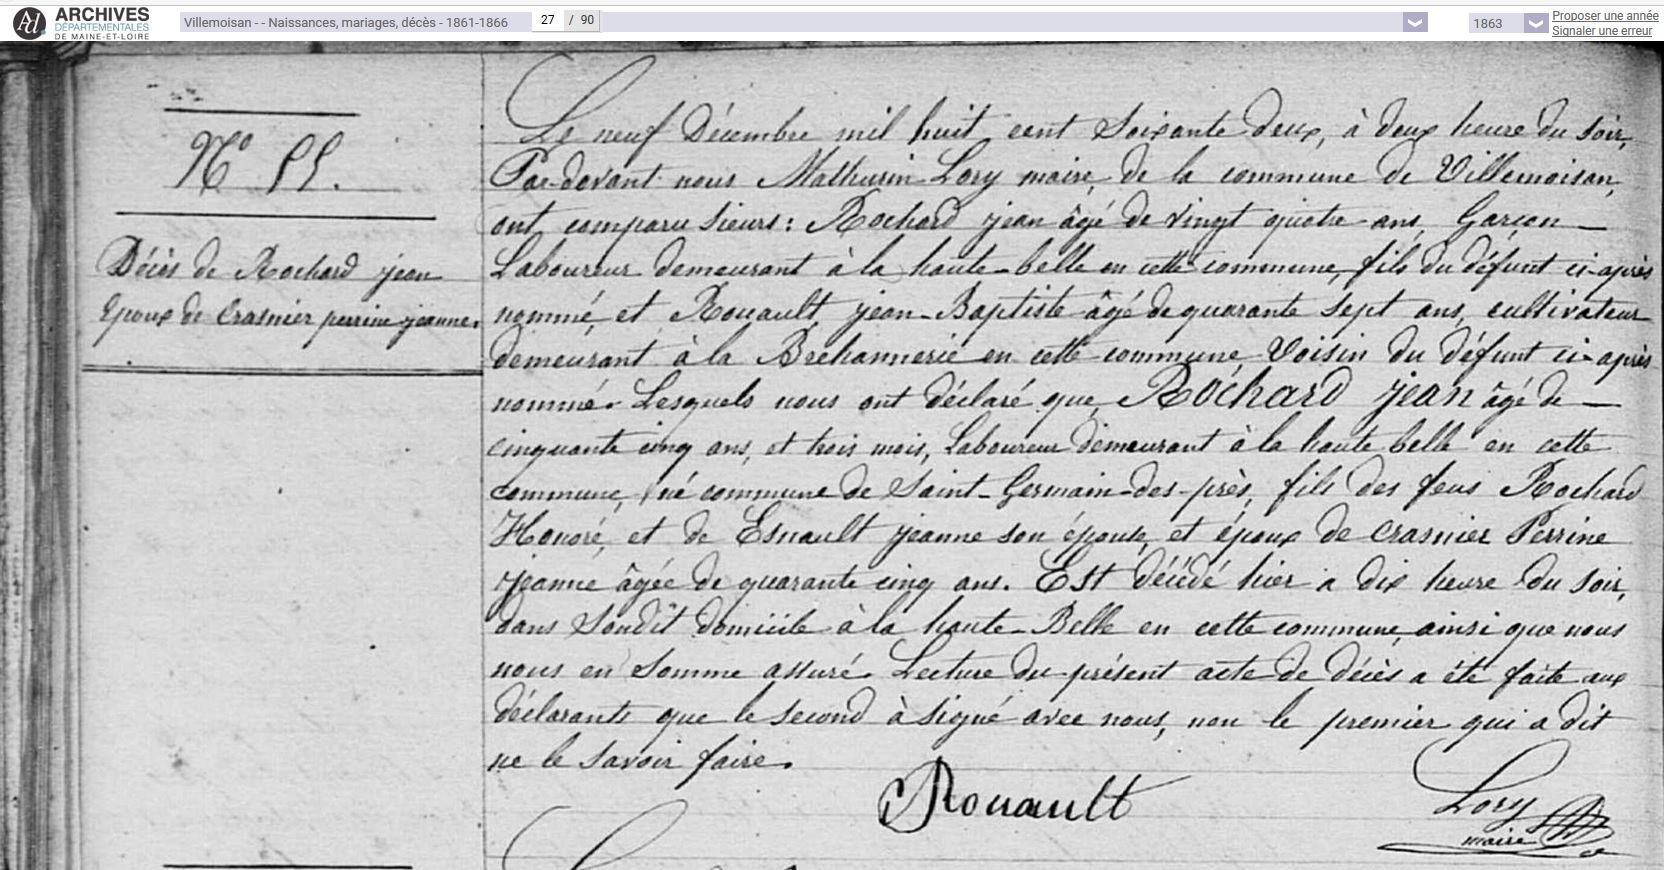 ARCHIVES
DÉPARTEMENTALES
DE MAINE-ET-LOIRE
Villemoisan - - Naissances, mariages, décès - 1861-1866
27 / 90
1863
Proposer une année
Signaler une erreur
N°
Décès de Rochard jean
Epoux de Crasnier perrine jeanne.
Le neuf Décembre mil huit cent Soixante deux, à deux heure du soir,
Par-devant nous Mathurin Lory maire de la commune de Villemoisan,
ont comparu sieurs : Rochard jean âgé de vingt quatre ans, Garçon —
Laboureur demeurant à la haute-belle en cette commune, fils du défunt ci-après
nommé, et Rouault jean-Baptiste âgé de quarante sept ans, cultivateur
demeurant à la Brehannerie en cette commune Voisin du défunt ci-après
nommé. Lesquels nous ont déclaré que Rochard jean âgé de —
cinquante cinq ans, et trois mois, Laboureur demeurant à la haute belle en cette
commune, né commune de Saint-Germain-des-près, fils des feus Rochard
Honoré, et de Esnault jeanne son épouse, et époux de Crasnier Perrine
jeanne âgée de quarante cinq ans. Est décédé hier a dix heure du soir,
dans Soudit domicile à la haute-Belle en cette commune, ainsi que nous
nous en Somme assuré. Lecture du présent acte de décès a été faite aux
déclarants que le second à signé avec nous, non le premier qui a dit
ne le savoir faire.
Rouault
Lory
maire